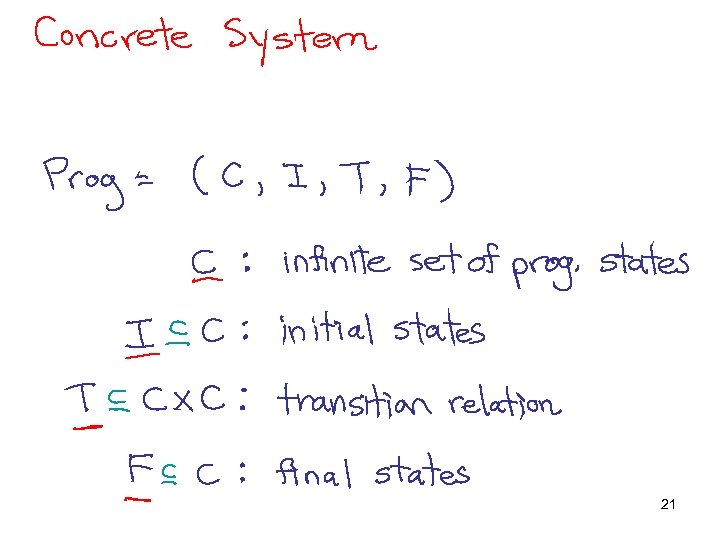 Concrete System
Prog = (C, I, T, F)
C : infinite set of prog. states
I ⊆ C : initial states
T ⊆ C x C : transition relation
F ⊆ C : final states
21